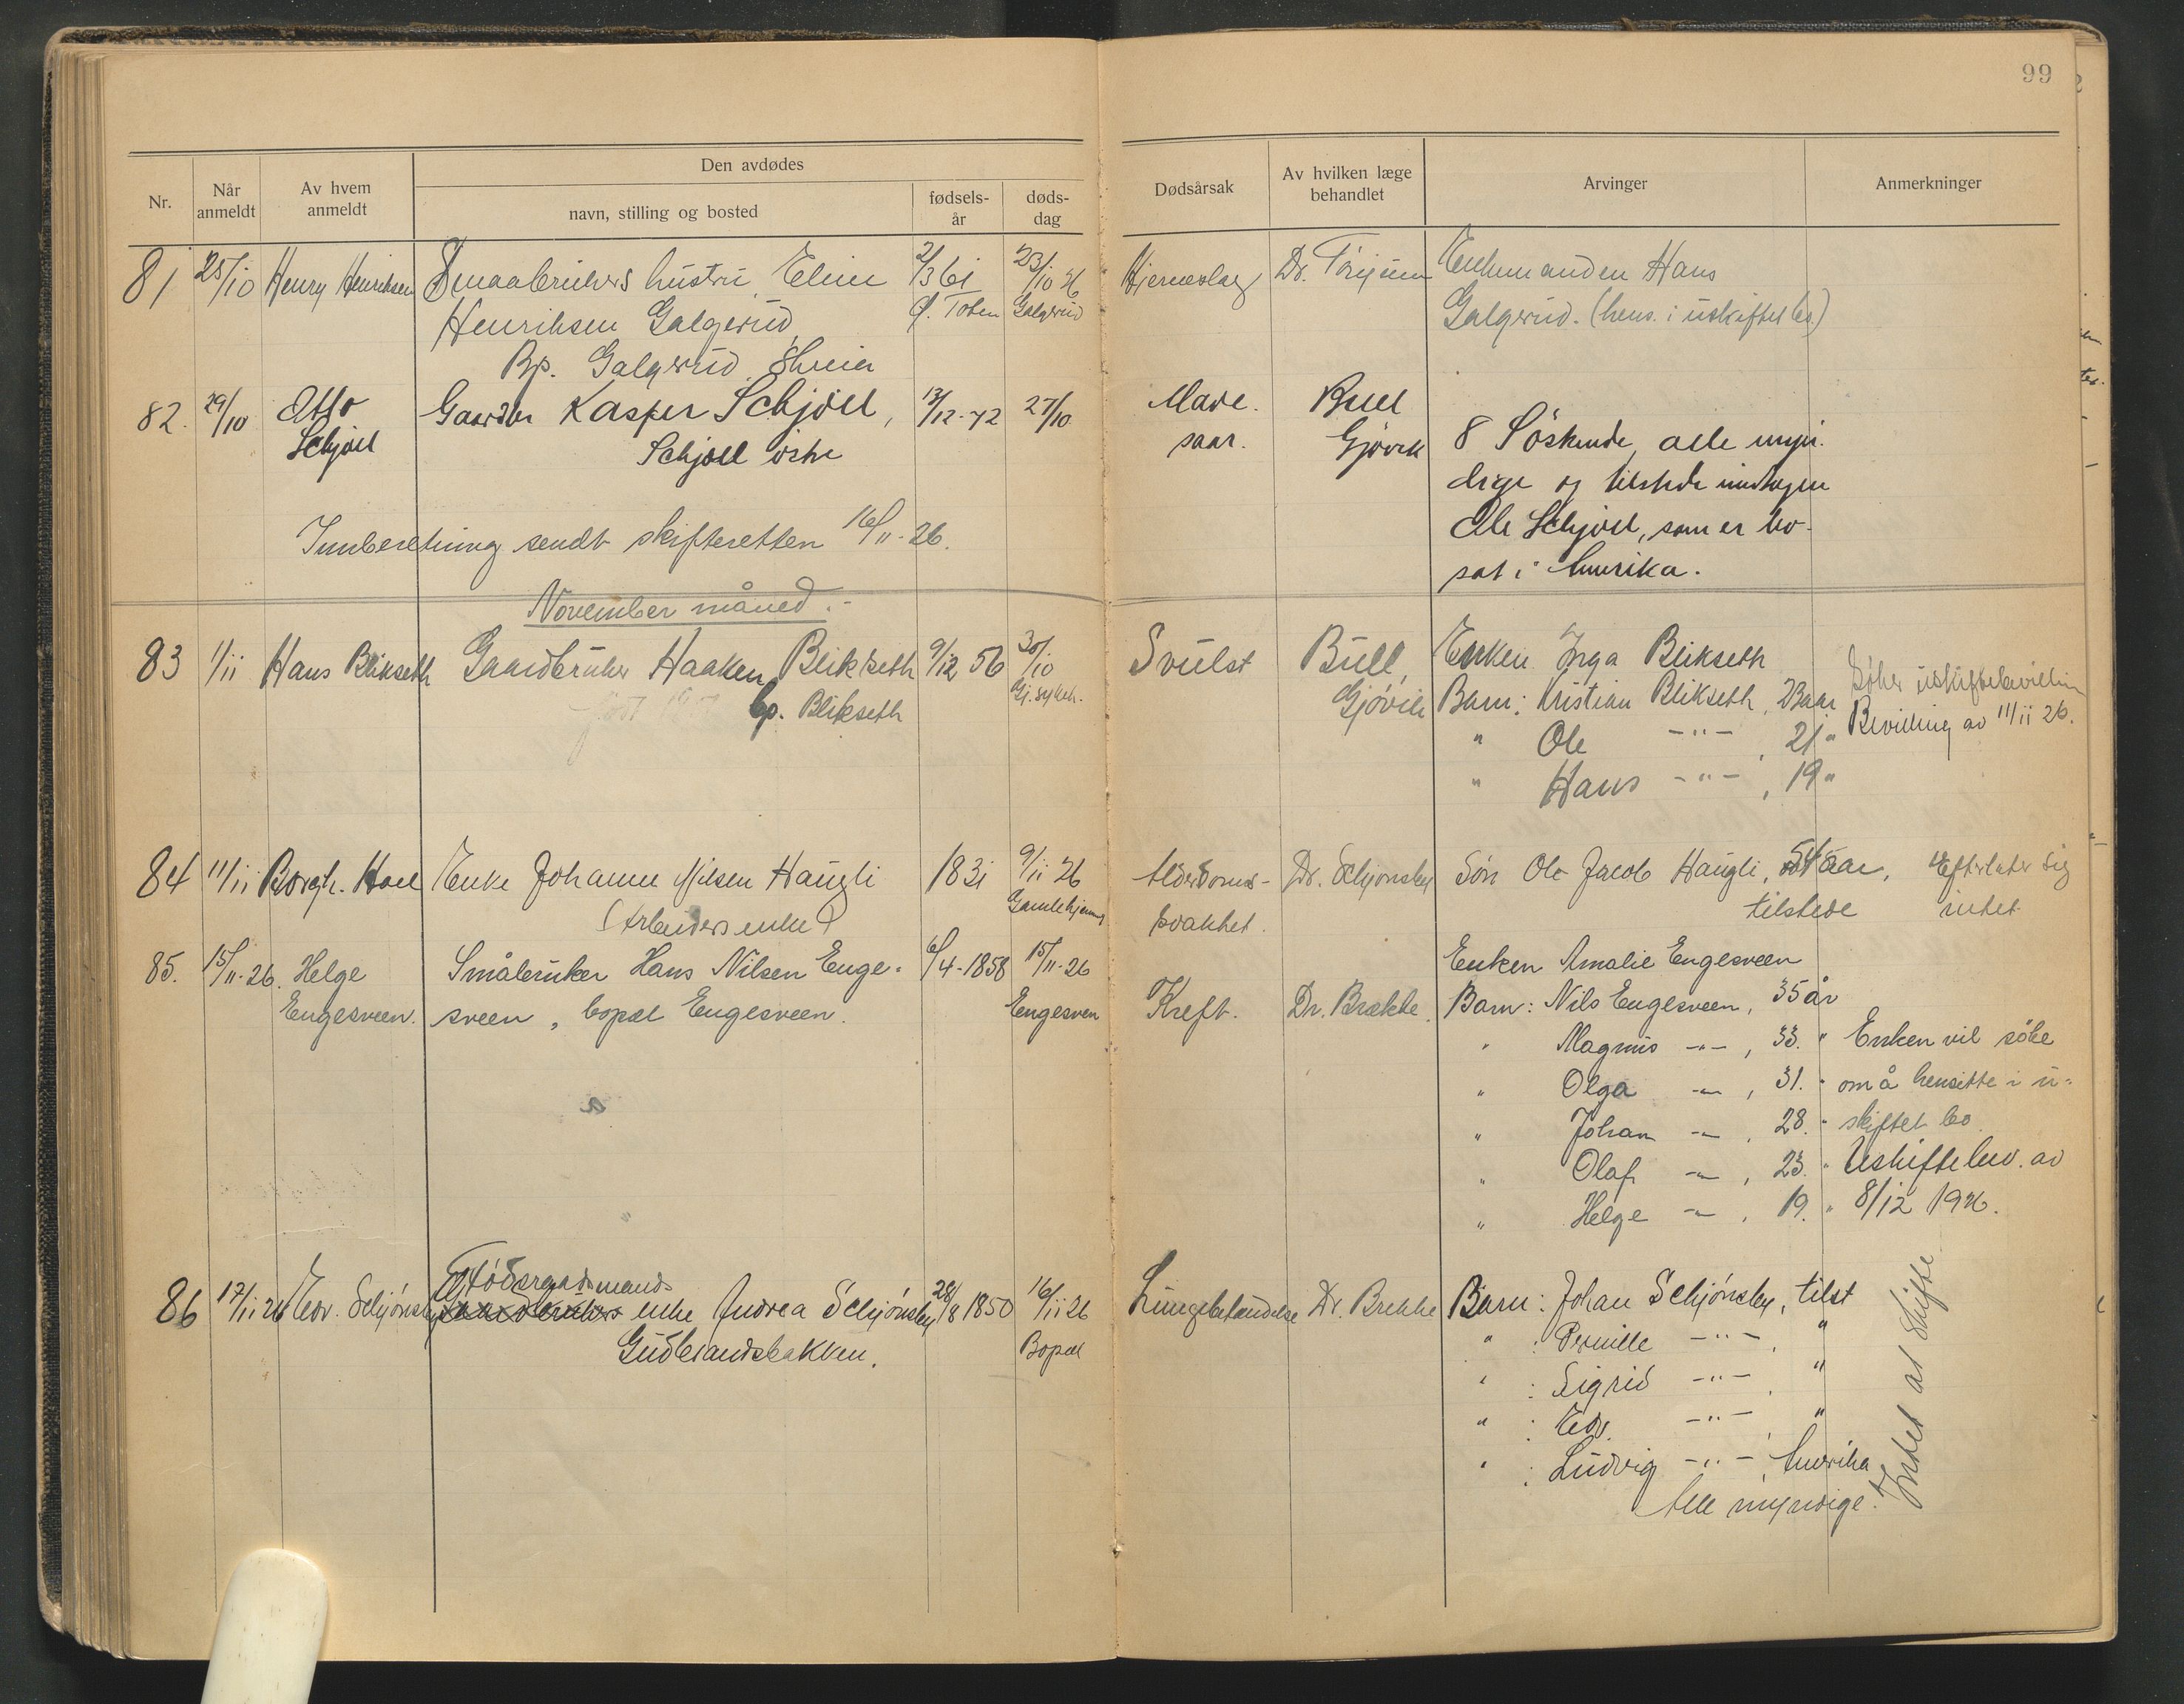 99
Nr.
Når anmeldt
Av hvem anmeldt
Den avdødes
navn, stilling og bosted
fødsels-år
døds-dag
Dødsårsak
Av hvilken læge behandlet
Arvinger
Anmerkninger
81 25/10 Henry Henriksen Smaabrukers hustru Eline 2/3 61 23/10 26 Hjerneslag Dr. Enkemanden Hans
Henriksen Galgerud Ø. Toten Galgerud Galgerud. (hens. i uskiftet bo)
Bp. Galgerud Skreia
82. 29/10 Otto Gaardbr Kasper Schjøll, 13/12-72 27/10 Mave- Bull
Schjøll Schjøll østre saar. Gjøvik 8 Söskende, alle myn-
dige og tilstede undtagen
Ole Schjøll, som er bo-
Innberetning sendt skifteretten 16/11-26.
sat i Amerika.
November måned.-
83 1/11 Hans Blikseth Gaardbruker Haaken Blikseth 9/12 56 30/10 Svulst Bull, Enken Inga Blikseth
bp. Blikseth Gj. sykeh. Gjövik Barn: Kristian Blikseth, 23 aar Søker uskiftebevilling
" Ole -"- , 21 " Bevilling av 11/11 26.
" Hans -"- , 19 "
84 11/11 Borgh. Hoel Enke Johanne Nilsen Haugli 1831 9/11 26 Alderdoms- Dr. Schjønsby Sön Ole Jacob Haugli, 54 aar, Efterlater sig
(Arbeiders enke) Gamlehjemmet svakhet. tilstede intet
85. 15/11-26. Helge Småbruker Hans Nilsen Enge- 6/4-1858 15/11-26 Enken Amalie Engesveen
Engesveen. sveen, bopæl Engesveen. Engesveen Kreft. Dr. Brække. Barn: Nils Engesveen, 35 år
" Magnus -"- , 33. " Enken vil söke
" Olga -"- , 31. " om å hensitte i u-
" Johan -"- , 28. " skiftet bo.
" Olaf -"- , 23. " Uskiftebev. av
" Helge -"- , 19. " 8/12 1926.
86 17/11 26 Edv. Schjönsby Flödsraadsmands
enke Andrea Schjönsby 28/8 1850 16/11 26 Lungebetændelse Dr. Brekke Barn: Johan Schjönsby, tilst
Gudbrandsbakken. Bopæl " : Pernille -"- , "
" : Sigrid -"- , "
" : Edv. -"- "
" : Ludvig -"- , Amerika
Alle myndige.
Intet at skifte